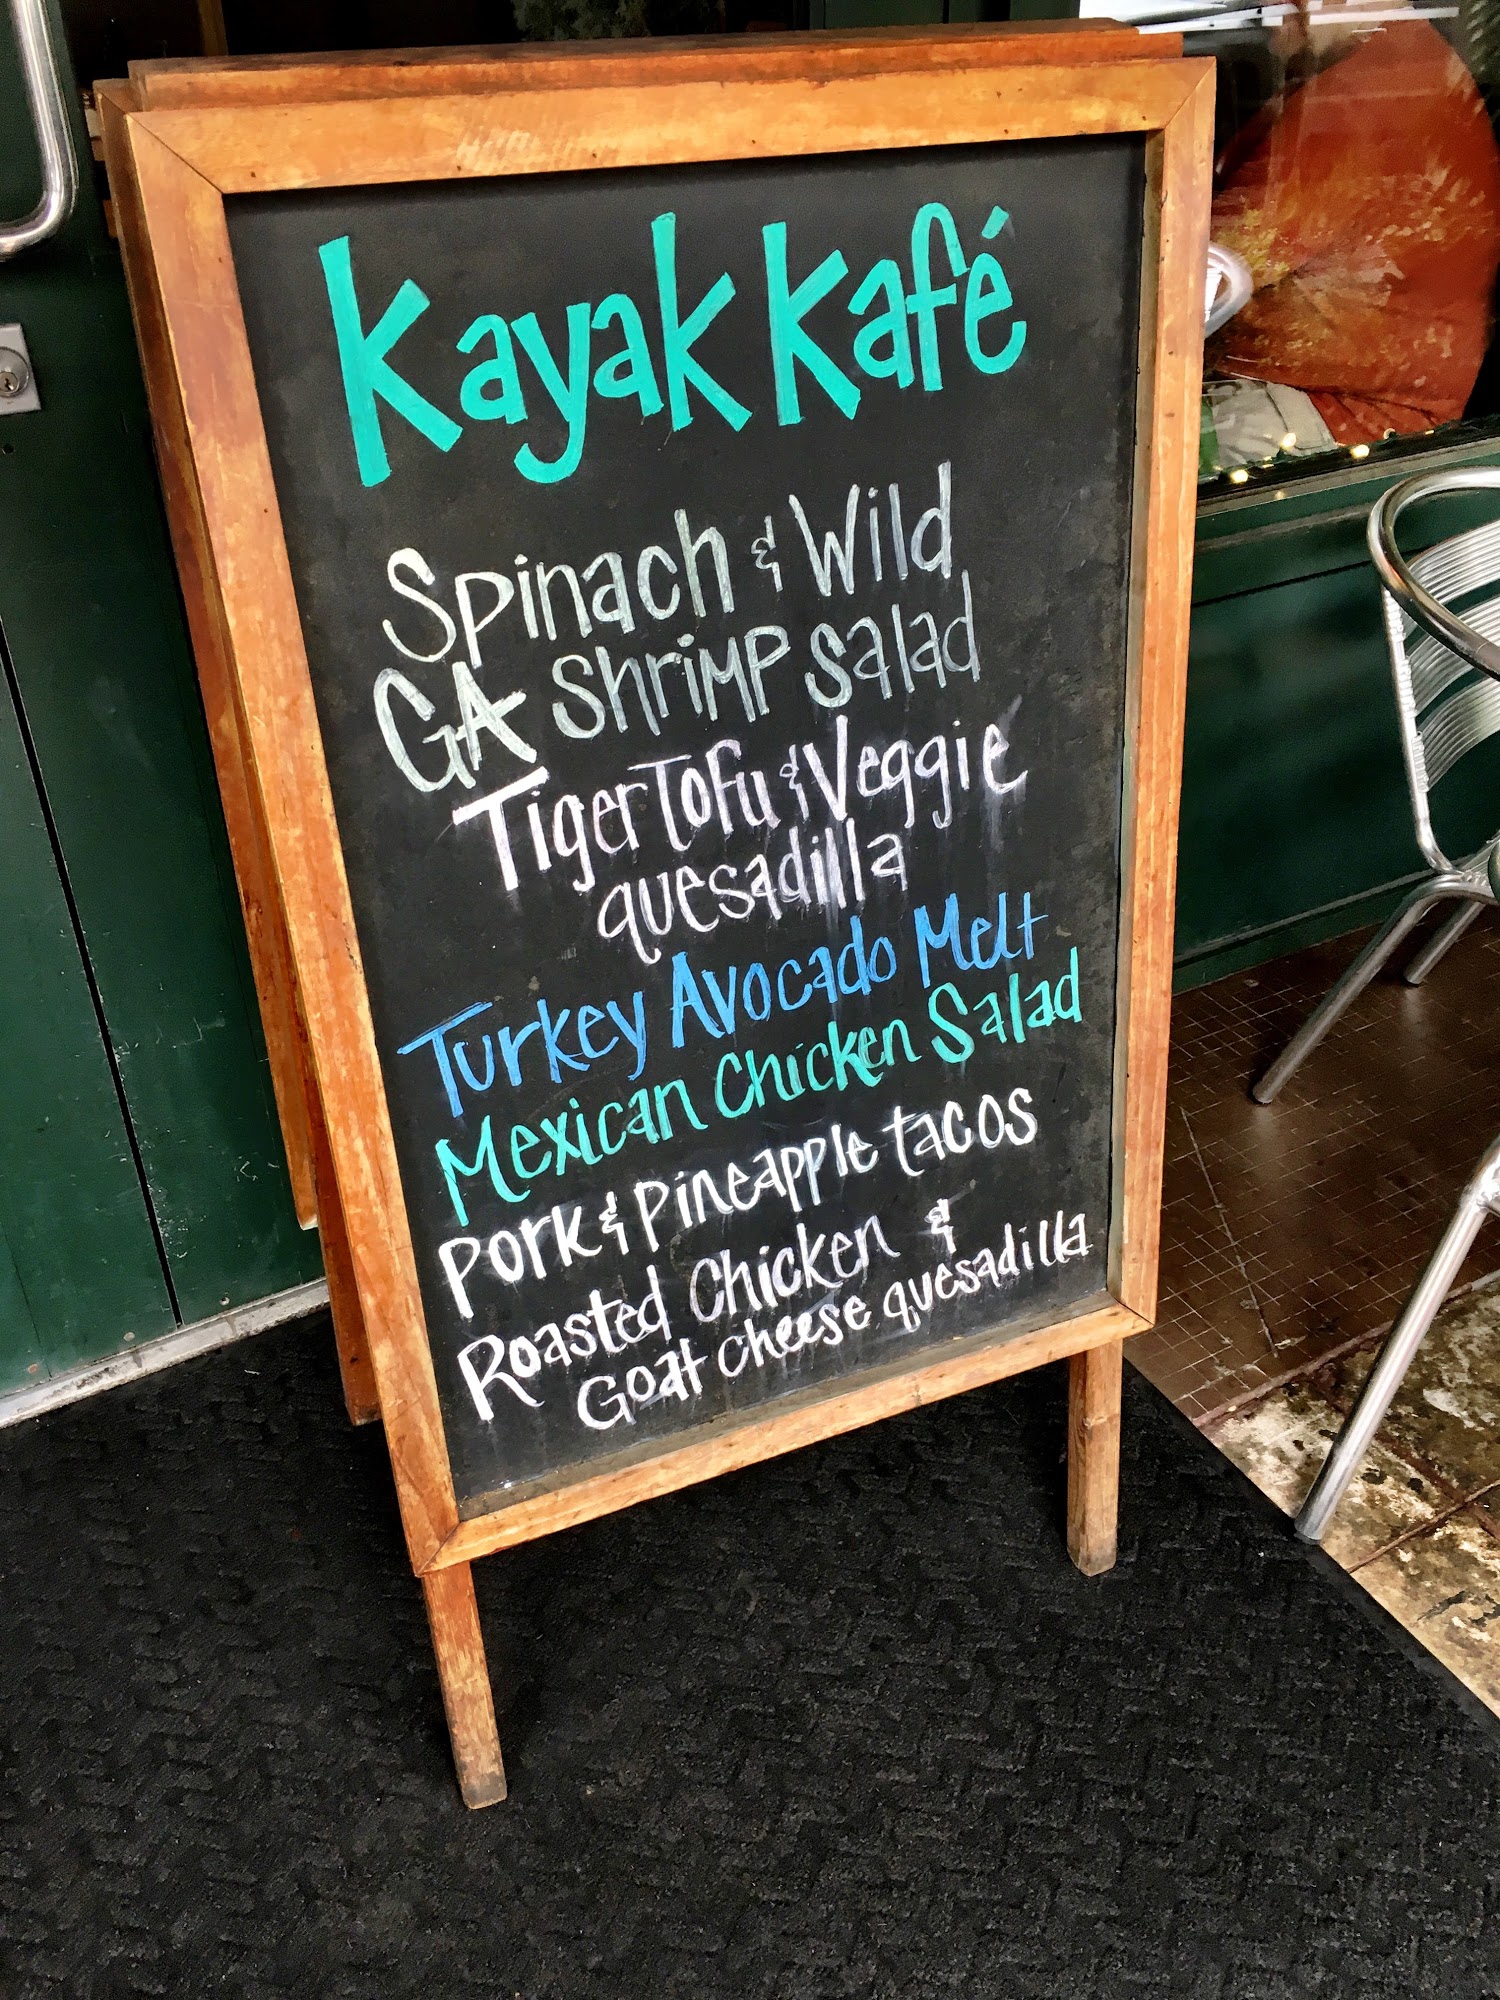 Kayak Kafé
Spinach & Wild
GA Shrimp Salad
Tiger Tofu & Veggie
quesadilla
Turkey Avocado Melt
Mexican Chicken Salad
Pork & Pineapple tacos
Roasted Chicken &
Goat cheese quesadilla